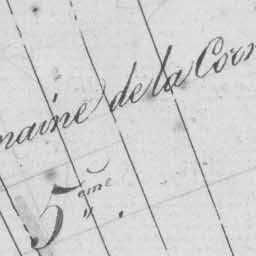 maine de la Coor
5ème " .